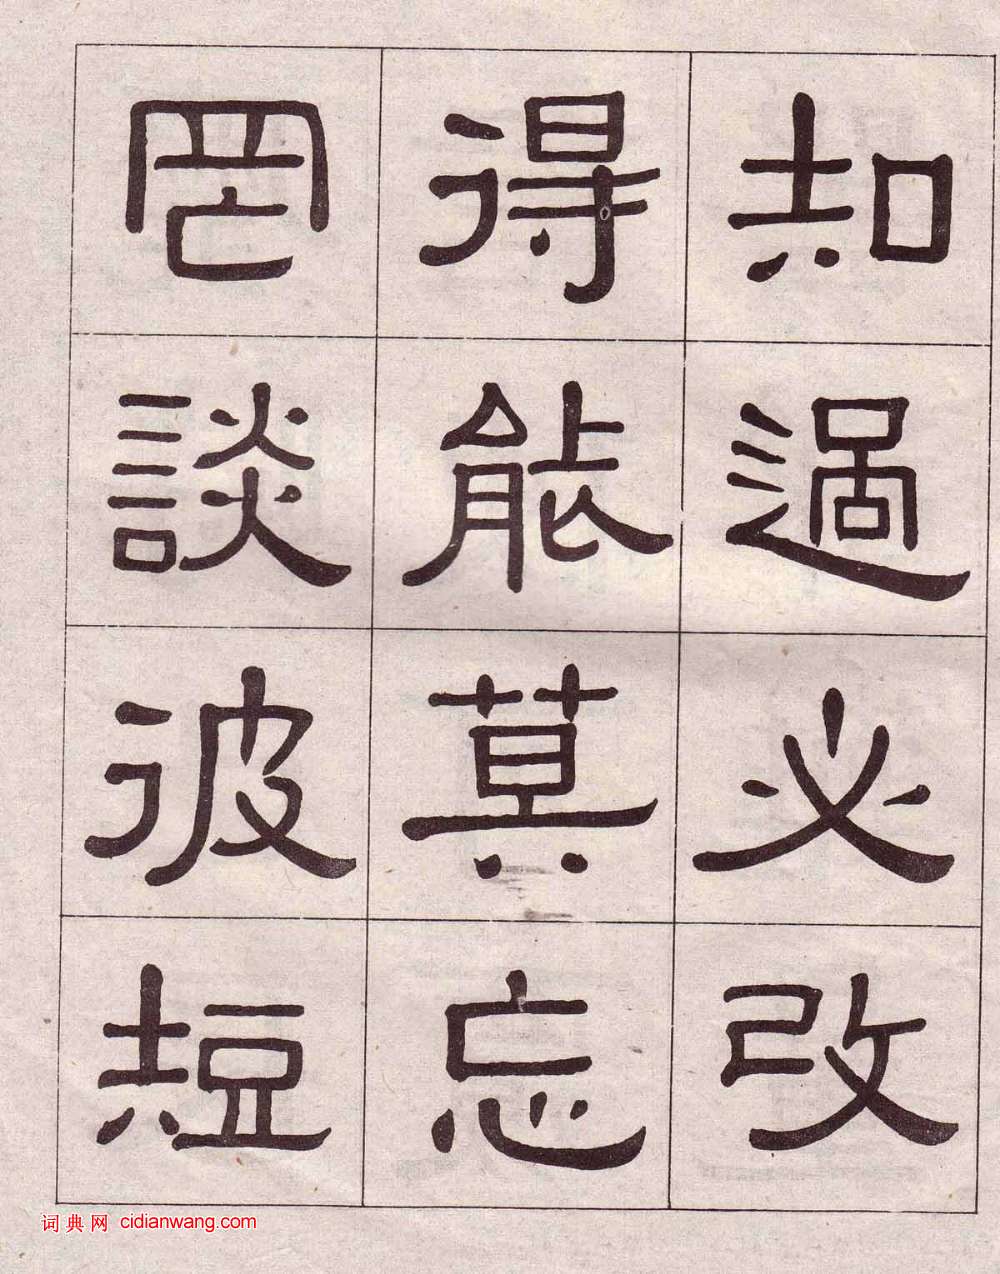 知過必改
得能莫忘
罔談彼短
词典网 cidianwang.com